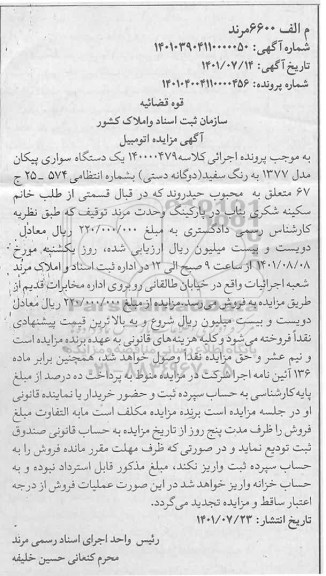 م الف ۶۶۰۰مرند
شماره آگهی: ۱۴۰۱۰۳۹۰۴۱۱۰۰۰۰۰۵۰
تاریخ آگهی: ۱۴۰۱/۰۷/۱۴
شماره پرونده: ۱۴۰۱۰۴۰۰۴۱۱۰۰۰۴۵۶
قوه قضائیه
سازمان ثبت اسناد واملاک کشور
آگهی مزایده اتومبیل
به موجب پرونده اجرائی کلاسه۱۴۰۰۰۰۴۷۹ یک دستگاه سواری پیکان
مدل ۱۳۷۷ به رنگ سفید(دوگانه دستی) بشماره انتظامی ۵۷۴ _ ۲۵ ج
۶۷ متعلق به محبوب حیدروند که در قبال قسمتی از طلب خانم
سکینه شکری بناب در پارکینگ وحدت مرند توقیف که طبق نظریه
کارشناس رسمی دادگستری به مبلغ ۲۲۰/۰۰۰/۰۰۰ ریال معادل
دویست و بیست میلیون ریال ارزیابی شده، روز یکشنبه مورخ
۱۴۰۱/۰۸/۰۸ از ساعت ۹ صبح الی ۱۲ در اداره ثبت اسناد و املاک مرند
شعبه اجرائیات واقع در خیابان طالقانی روبروی اداره مخابرات قدیم از
طریق مزایده به فروش می رسد.مزایده از مبلغ ۲۲۰/۰۰۰/۰۰۰ ریال معادل
دویست و بیست میلیون ریال شروع و به بالاترین قیمت پیشنهادی
نقداً فروخته می شود وکلیه هزینه های قانونی به عهده برنده مزایده است
و نیم عشر و حق مزایده نقداً وصول خواهد شد، همچنین برابر ماده
۱۳۶ آئین نامه اجرا شرکت در مزایده منوط به پرداخت ده درصد از مبلغ
پایه کارشناسی به حساب سپرده ثبت و حضور خریدار یا نماینده قانونی
او در جلسه مزایده است برنده مزایده مکلف است مابه التفاوت مبلغ
فروش را ظرف مدت پنج روز از تاریخ مزایده به حساب قانونی صندوق
ثبت تودیع نماید و در صورتی که ظرف مهلت مقرر مانده فروش را به
حساب سپرده ثبت واریز نکند، مبلغ مذکور قابل استرداد نبوده و به
حساب خزانه واریز خواهد شد در این صورت عملیات فروش از درجه
اعتبار ساقط و مزایده تجدید می گردد.
تاریخ انتشار: ۱۴۰۱/۰۷/۲۳
رئیس واحد اجرای اسناد رسمی مرند
محرم کنعانی حسین خلیفه